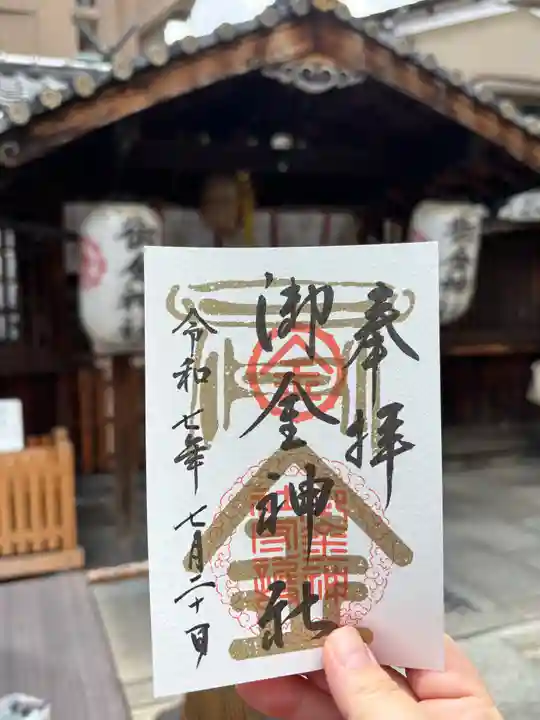 奉拝
御金神社
令和七年 七月二十日
金
御金神社